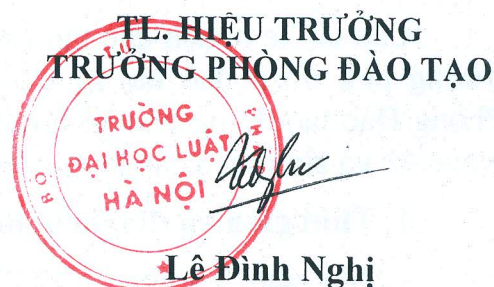 TL. HIỆU TRƯỞNG
TRƯỞNG PHÒNG ĐÀO TẠO
TRƯỜNG
ĐẠI HỌC LUẬT
HÀ NỘI
Lê Đình Nghị